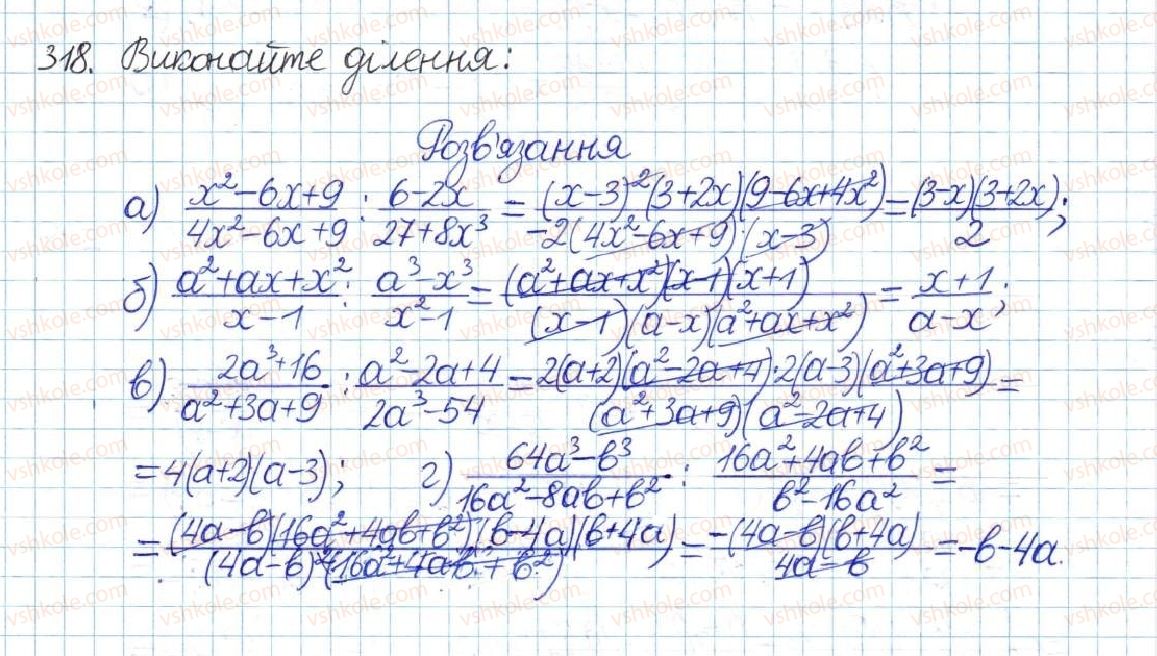 318. Виконайте ділення:
Розв'язання
а) (x²-6x+9)/(4x²-6x+9) : (6-2x)/(27+8x³) = ((x-3)²(3+2x)(9-6x+4x²))/(-2(4x²-6x+9)(x-3)) = ((3-x)(3+2x))/2;
б) (a²+ax+x²)/(x-1) : (a³-x³)/(x²-1) = ((a²+ax+x²)(x-1)(x+1))/((x-1)(a-x)(a²+ax+x²)) = (x+1)/(a-x);
в) (2a³+16)/(a²+3a+9) : (a²-2a+4)/(2a³-54) = (2(a+2)(a²-2a+4)·2(a-3)(a²+3a+9))/((a²+3a+9)(a²-2a+4)) =
= 4(a+2)(a-3); г) (64a³-в³)/(16a²-8aв+в²) : (16a²+4aв+в²)/(в²-16a²) =
= ((4a-в)(16a²+4aв+в²)(в-4a)(в+4a))/((4a-в)²(16a²+4aв+в²)) = (-(4a-в)(в+4a))/(4a-в) = -в-4a.
vshkole.com